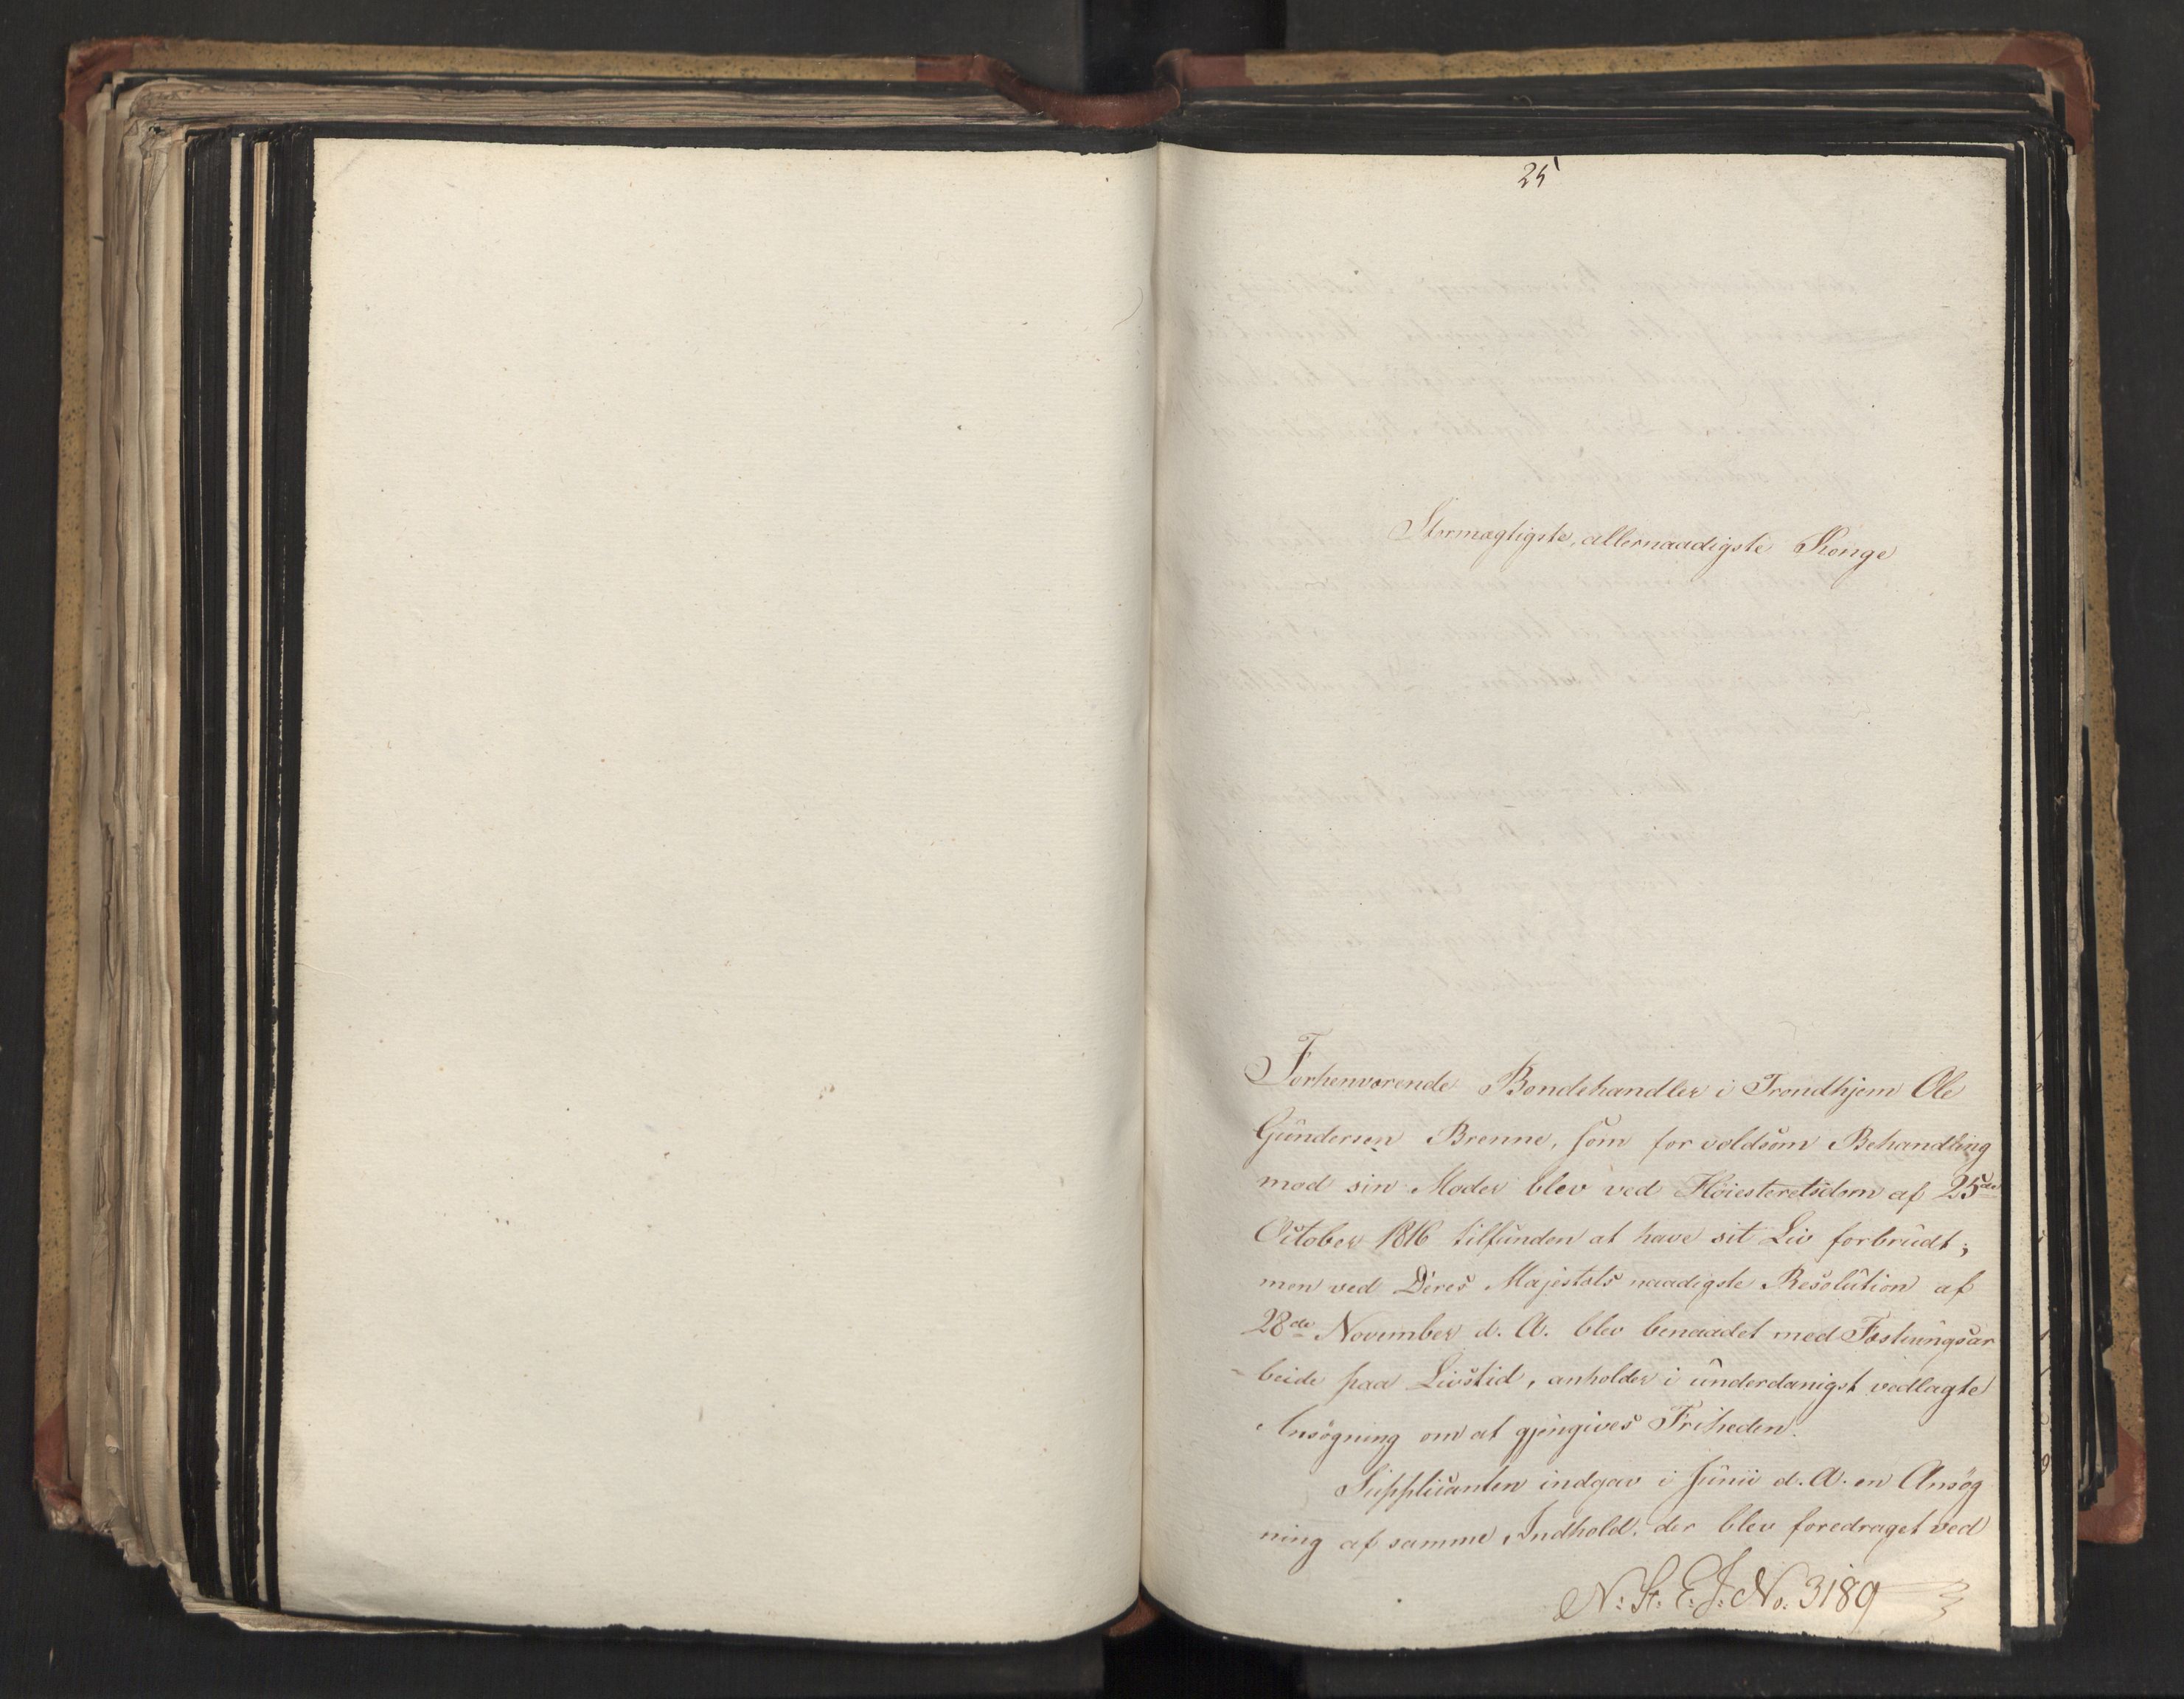 25
Stormægtigste, allernaadigste Konge
Forhenværende Bondehandler i Trondhjem Ole
Gundersen Brenne, som for voldsom Behandling
mod sin Moder blev ved Höiesteretsdom af 25de
October 1816 tilfunden at have sit Liv forbrudt;
men ved Deres Majestæts naadigste Resolution af
28de November d. A. blev benaadet med Fæstningsar
-beide paa Livstid, anholder i underdanigst vedlagte
Ansögning om at gjengives Friheden.
Supplicanten indgav i Junii d. A. en Ansög
ning af samme Indhold, der blev foredraget ved
N: St. E. J: No. 3189